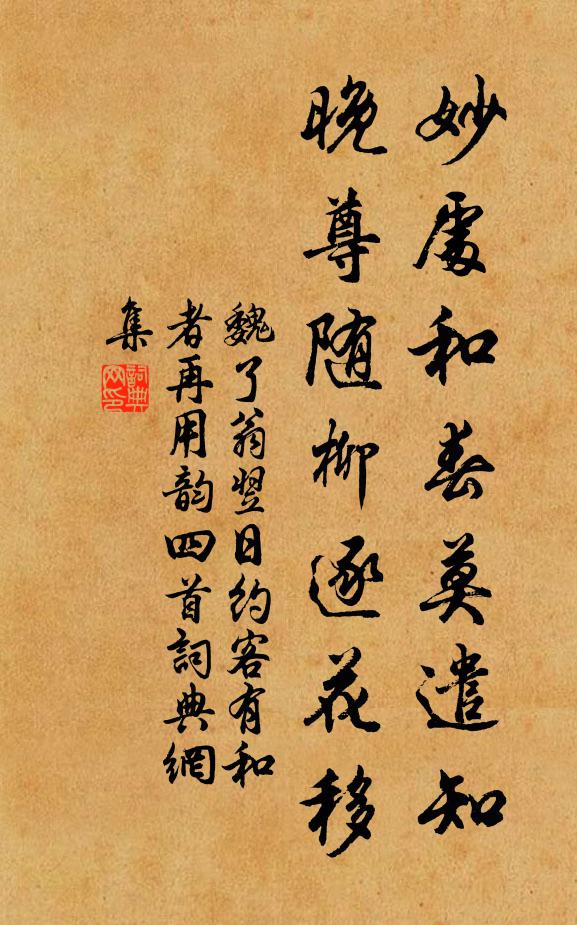 妙處和春莫遣知
晚尊随柳逐花移
魏了翁翌日約客有和
者再用韵四首詞典網
集
詞典
网印